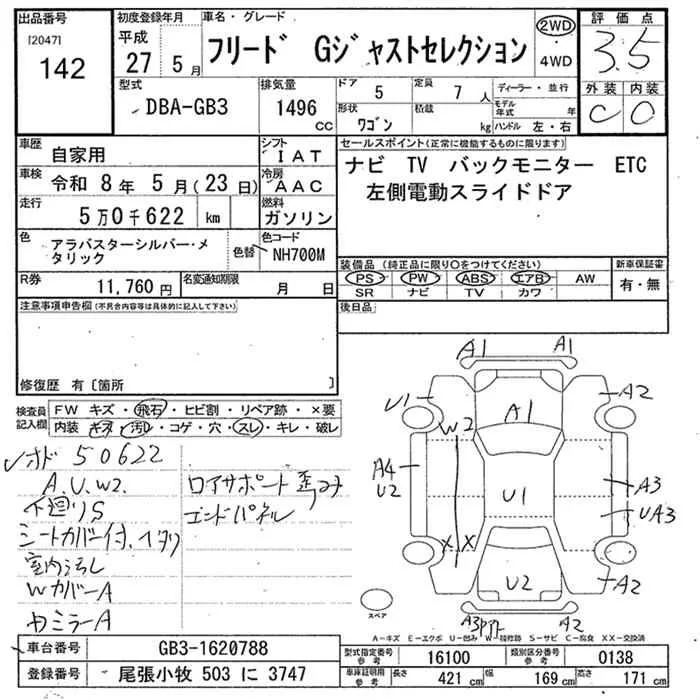 出品番号 初度登録年月 車名・グレード 2WD 評価点
[2047] 平成 フリード Gジャストセレクション ・ 3.5
142 27年 5月 4WD
型式 排気量 ドア 定員 ディーラー・並行 外装 内装
DBA-GB3 1496 CC 5 7人 モデル年式 年 C C
形状 ワゴン 積載 kg ハンドル 左・右
車歴 自家用 シフト IAT セールスポイント(正常に機能するものに限ります)
車検 令和 8年 5月(23日) 冷房 AAC ナビ TV バックモニター ETC
走行 5万0千622 km 燃料 ガソリン 左側電動スライドドア
色 アラバスターシルバー・メタリック 色替 色コード NH700M
装備品(純正品に限り○をつけてください) 新車保証書
R券 11,760円 名変通知期限 月 日 PS PW ABS エアB AW 有・無
SR ナビ TV カワ
注意事項申告欄(不具合内容等は具体的に記入して下さい) 後日品
修復歴 有〔箇所 〕
検査員記入欄 FW キズ・飛石・ヒビ割・リペア跡・×要
内装 キズ・汚れ・コゲ・穴・スレ・キレ・破レ
オド 50622
A.U.W2.
下廻りS ロアサポート歪み
シートカバー付. エンドパネル
室内汚れ
WカバーA
カミラーA
A1 A1
U1 A1 A2
W2
A4 U1 A3
U2 UA3
X X
U2 A2
A3 A2
スペア
A－キズ E－エクボ U－凹み W－補修跡 S－サビ C－腐食 XX－交換済
車台番号 GB3-1620788 型式指定番号 参考 16100 類別区分番号 参考 0138
登録番号 尾張小牧 503 に 3747 車庫証明用 参考 長さ 421 cm 幅 169 cm 高さ 171 cm